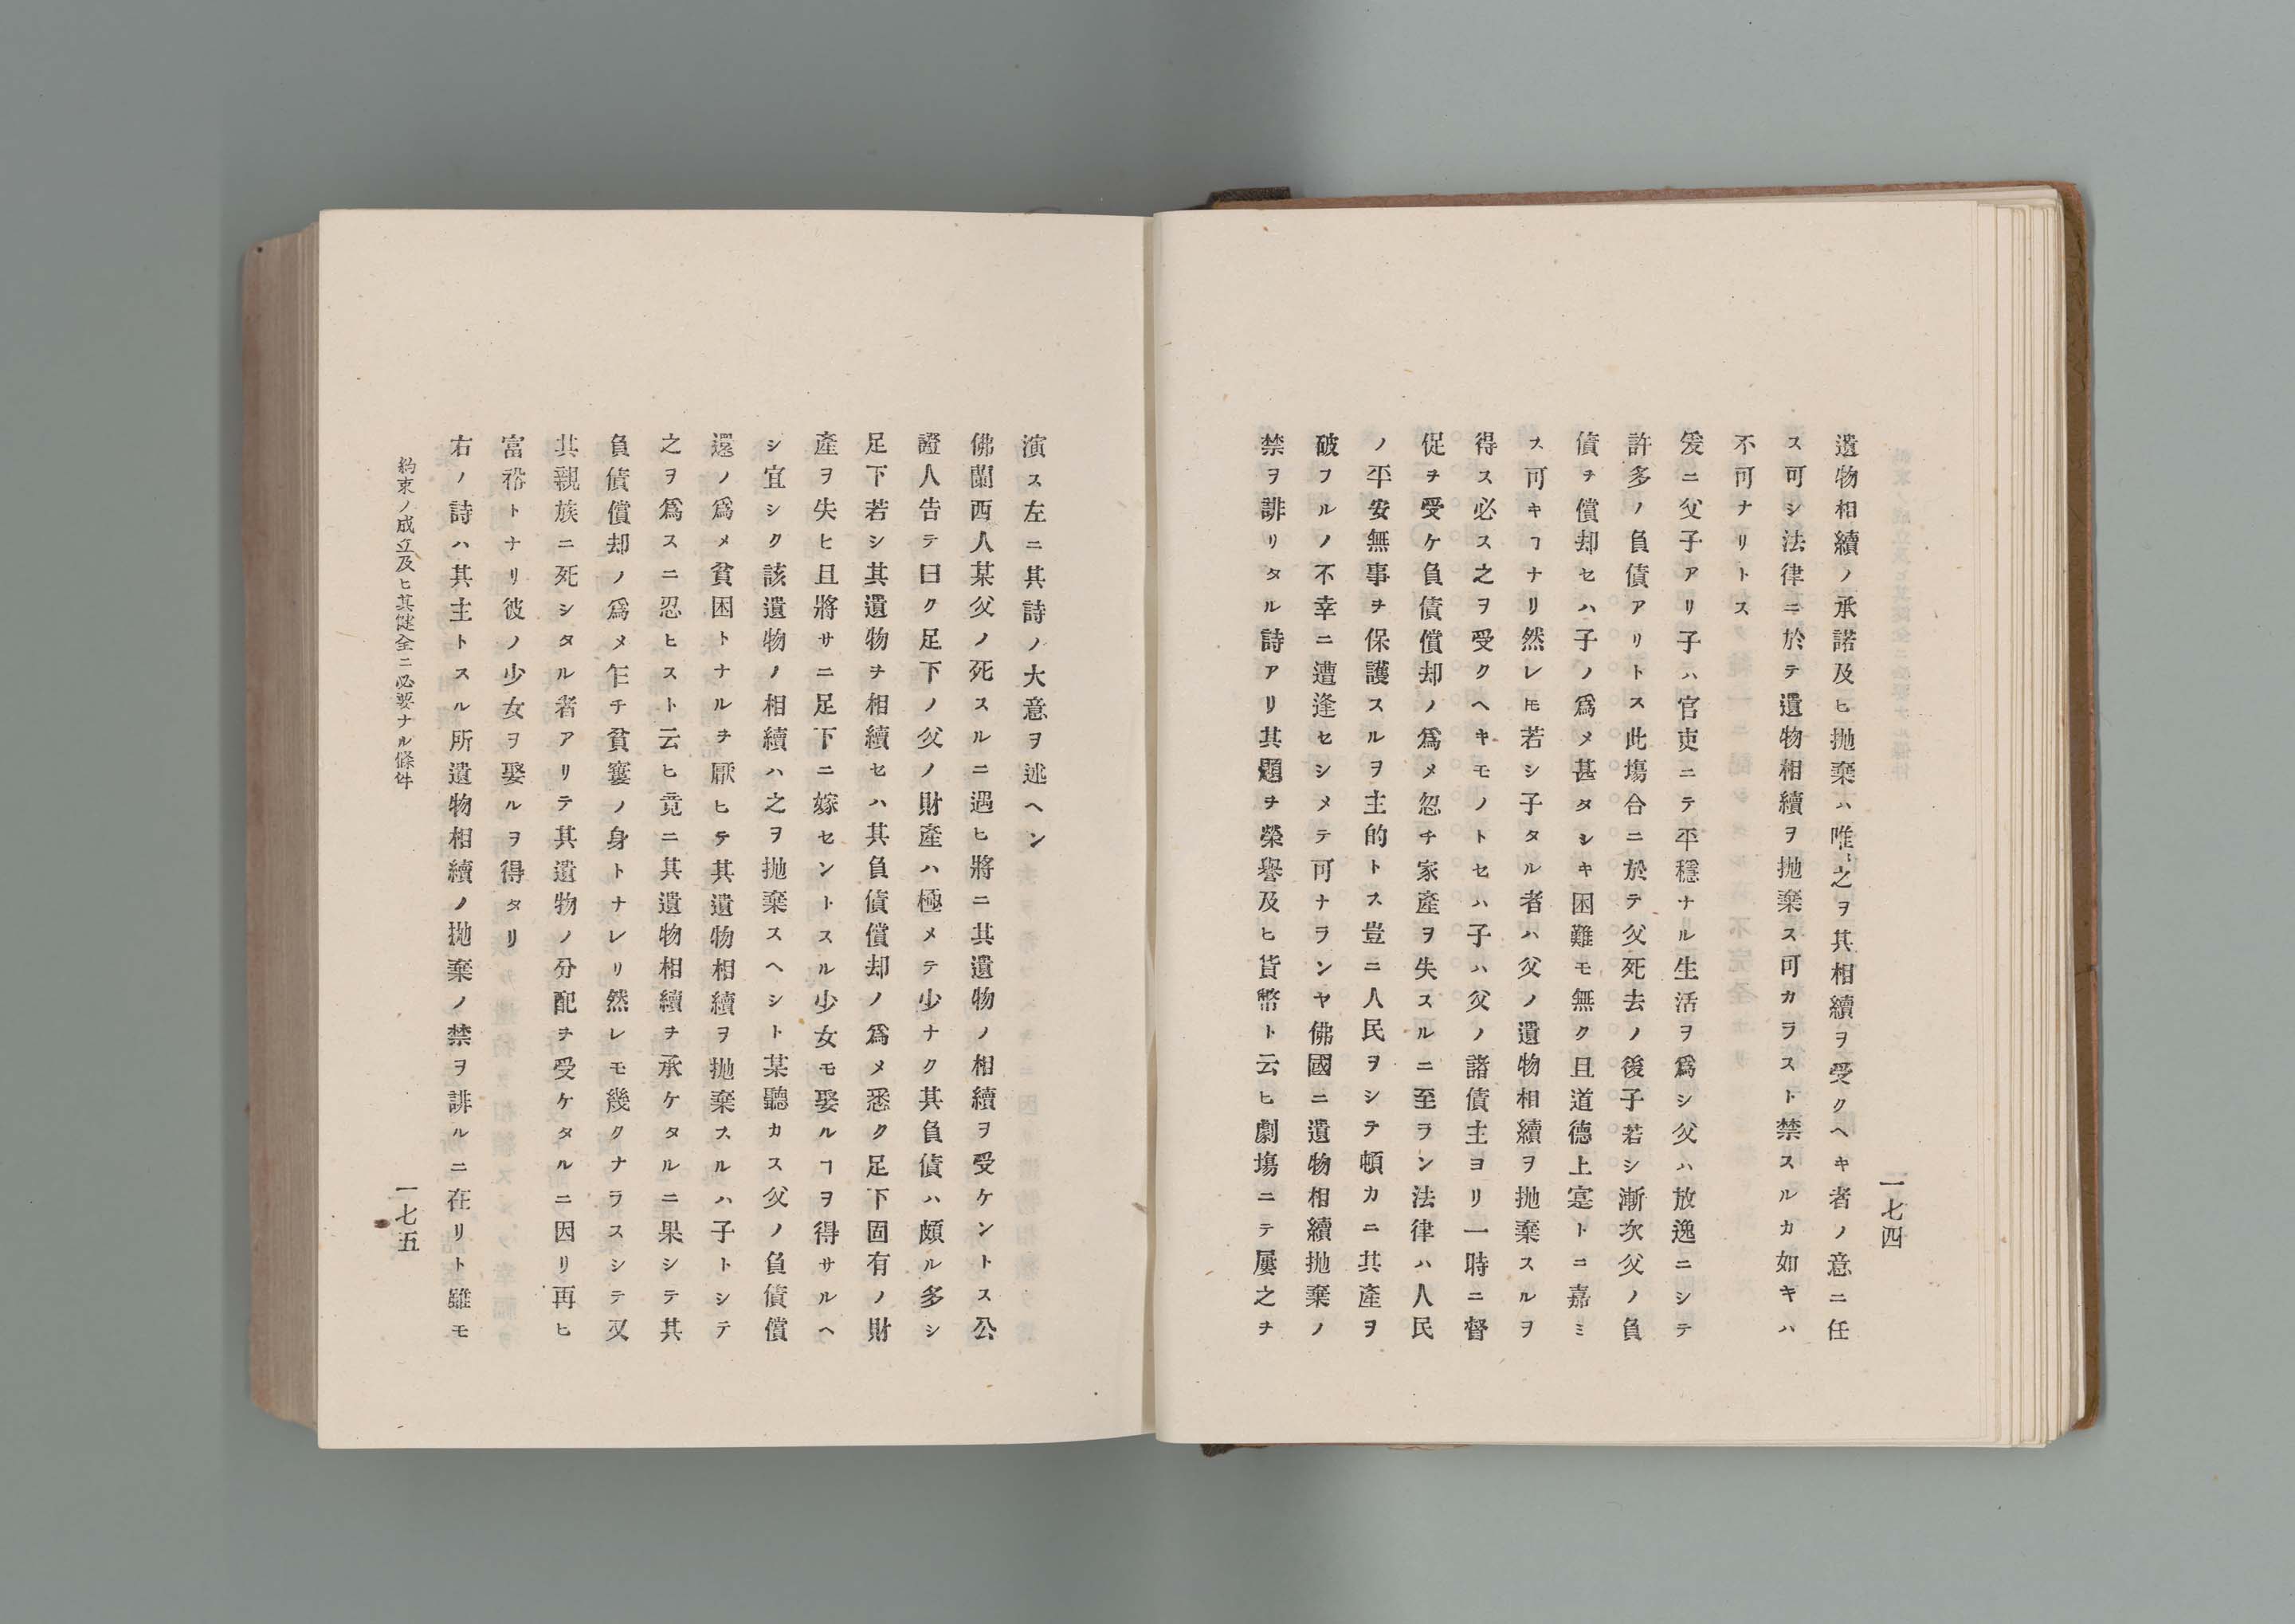 一七四
遺物相續ノ承諾及ヒ抛棄ハ唯〻之ヲ其相續ヲ受クヘキ者ノ意ニ任
ス可シ法律ニ於テ遺物相續ヲ抛棄ス可カラスト禁スルカ如キハ
不可ナリトス
爰ニ父子アリ子ハ官吏ニテ平穩ナル生活ヲ爲シ父ハ放逸ニシテ
許多ノ負債アリトス此塲合ニ於テ父死去ノ後子若シ漸次父ノ負
債ヲ償却セハ子ノ爲メ甚タシキ困難モ無ク且道德上寔トニ嘉ミ
ス可キヿナリ然レ𪜈若シ子タル者ハ父ノ遺物相續ヲ抛棄スルヲ
得ス必ス之ヲ受クヘキモノトセハ子ハ父ノ諸債主ヨリ一時ニ督
促ヲ受ケ負債償却ノ爲メ忽チ家產ヲ失スルニ至ラン法律ハ人民
ノ平安無事ヲ保護スルヲ主的トス豈ニ人民ヲシテ頓カニ其產ヲ
破フルノ不幸ニ遭逢セシメテ可ナランヤ佛國ニ遺物相續抛棄ノ
禁ヲ誹リタル詩アリ其題ヲ榮譽及ヒ貨幣ト云ヒ劇塲ニテ屢之ヲ
演ス左ニ其詩ノ大意ヲ述ヘン
佛蘭西人某父ノ死スルニ遇ヒ將ニ其遺物ノ相續ヲ受ケントス公
證人告テ曰ク足下ノ父ノ財產ハ極メテ少ナク其負債ハ頗ル多シ
足下若シ其遺物ヲ相續セハ其負債償却ノ爲メ悉ク足下固有ノ財
產ヲ失ヒ且將サニ足下ニ嫁セントスル少女モ娶ルヿヲ得サルヘ
シ宜シク該遺物ノ相續ハ之ヲ抛棄スヘシト某聽カス父ノ負債償
還ノ爲メ貧困トナルヲ厭ヒテ其遺物相續ヲ抛棄スルハ子トシテ
之ヲ爲スニ忍ヒスト云ヒ竟ニ其遺物相續ヲ承ケタルニ果シテ其
負債償却ノ爲メ乍チ貧窶ノ身トナレリ然レモ幾クナラスシテ又
其親族ニ死シタル者アリテ其遺物ノ分配ヲ受ケタルニ因リ再ヒ
富裕トナリ彼ノ少女ヲ娶ルヲ得タリ
右ノ詩ハ其主トスル所遺物相續ノ抛棄ノ禁ヲ誹ルニ在リト雖モ
約束ノ成立及ヒ其健全ニ必要ナル條件
一七五